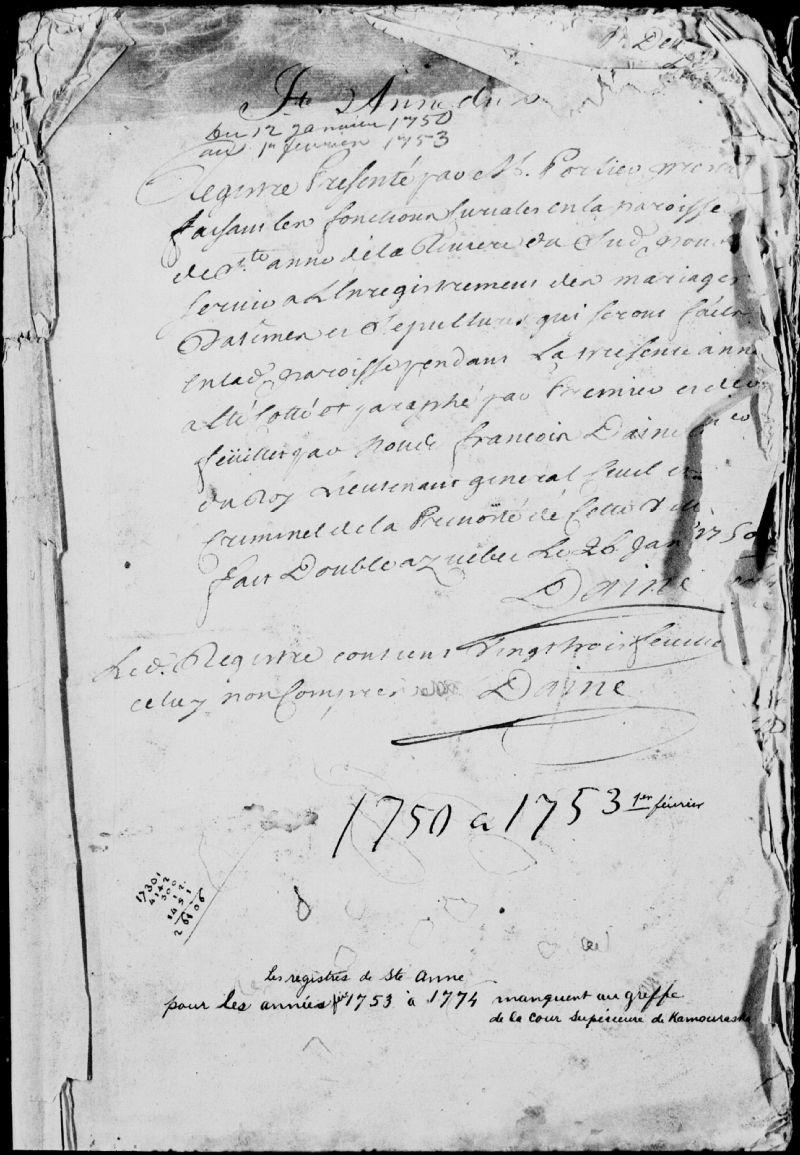 Ste Anne du
Du 12 janvier 1750
au 1er fevrier 1753
Registre Presenté par Mre Porlier prestre
faisant les fonctions Curiales en la paroisse
de Ste anne de la Riviere du Sud pour
servir a L'Enregistrement des mariages
Batêmes et Sepultures qui seront faits
en lad. paroisse pendant La presente anné
a Eté Cotté et paraphé par Premier et der
feüillet par Nous françois Daine
du Roy Lieutenant general Civil et
Criminel de la Prevôté de Cette Ville
fait Double a quebec Le 26 Janv 1750
Daine
Led. Registre contient Vingt trois feuillets
celuy non Compris Daine
1750 a 1753 1er février
17301
4142
500
1412
2606
Les registres de Ste Anne
pour les années 1753 à 1774 manquent au greffe
de la Cour Supérieure de Kamouraska